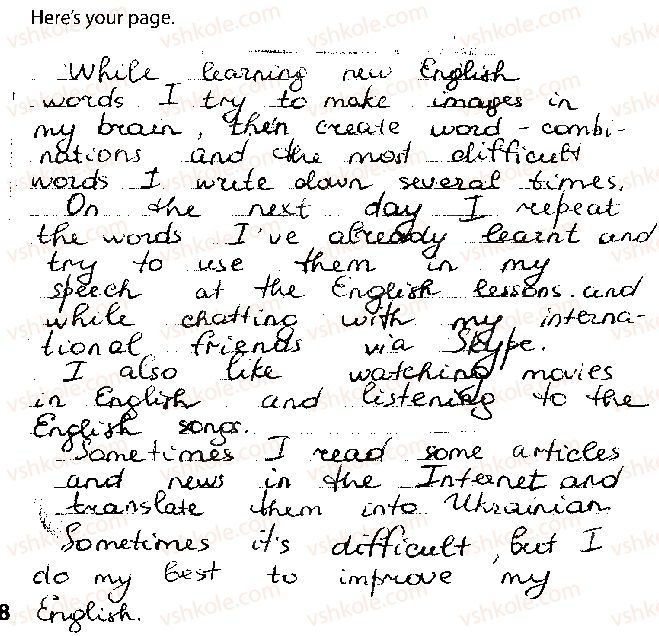 Here's your page.
While learning new English
words I try to make images in
my brain, then create word-combi-
nations and the most difficult
words I write down several times.
On the next day I repeat
the words I've already learnt and
try to use them in my
speech at the English lessons and
while chatting with my interna-
tional friends via Skype.
I also like watching movies
in English and listening to the
English songs.
Sometimes I read some articles
and news in the Internet and
translate them into Ukrainian
Sometimes it's difficult, but I
do my best to improve my
8 English.